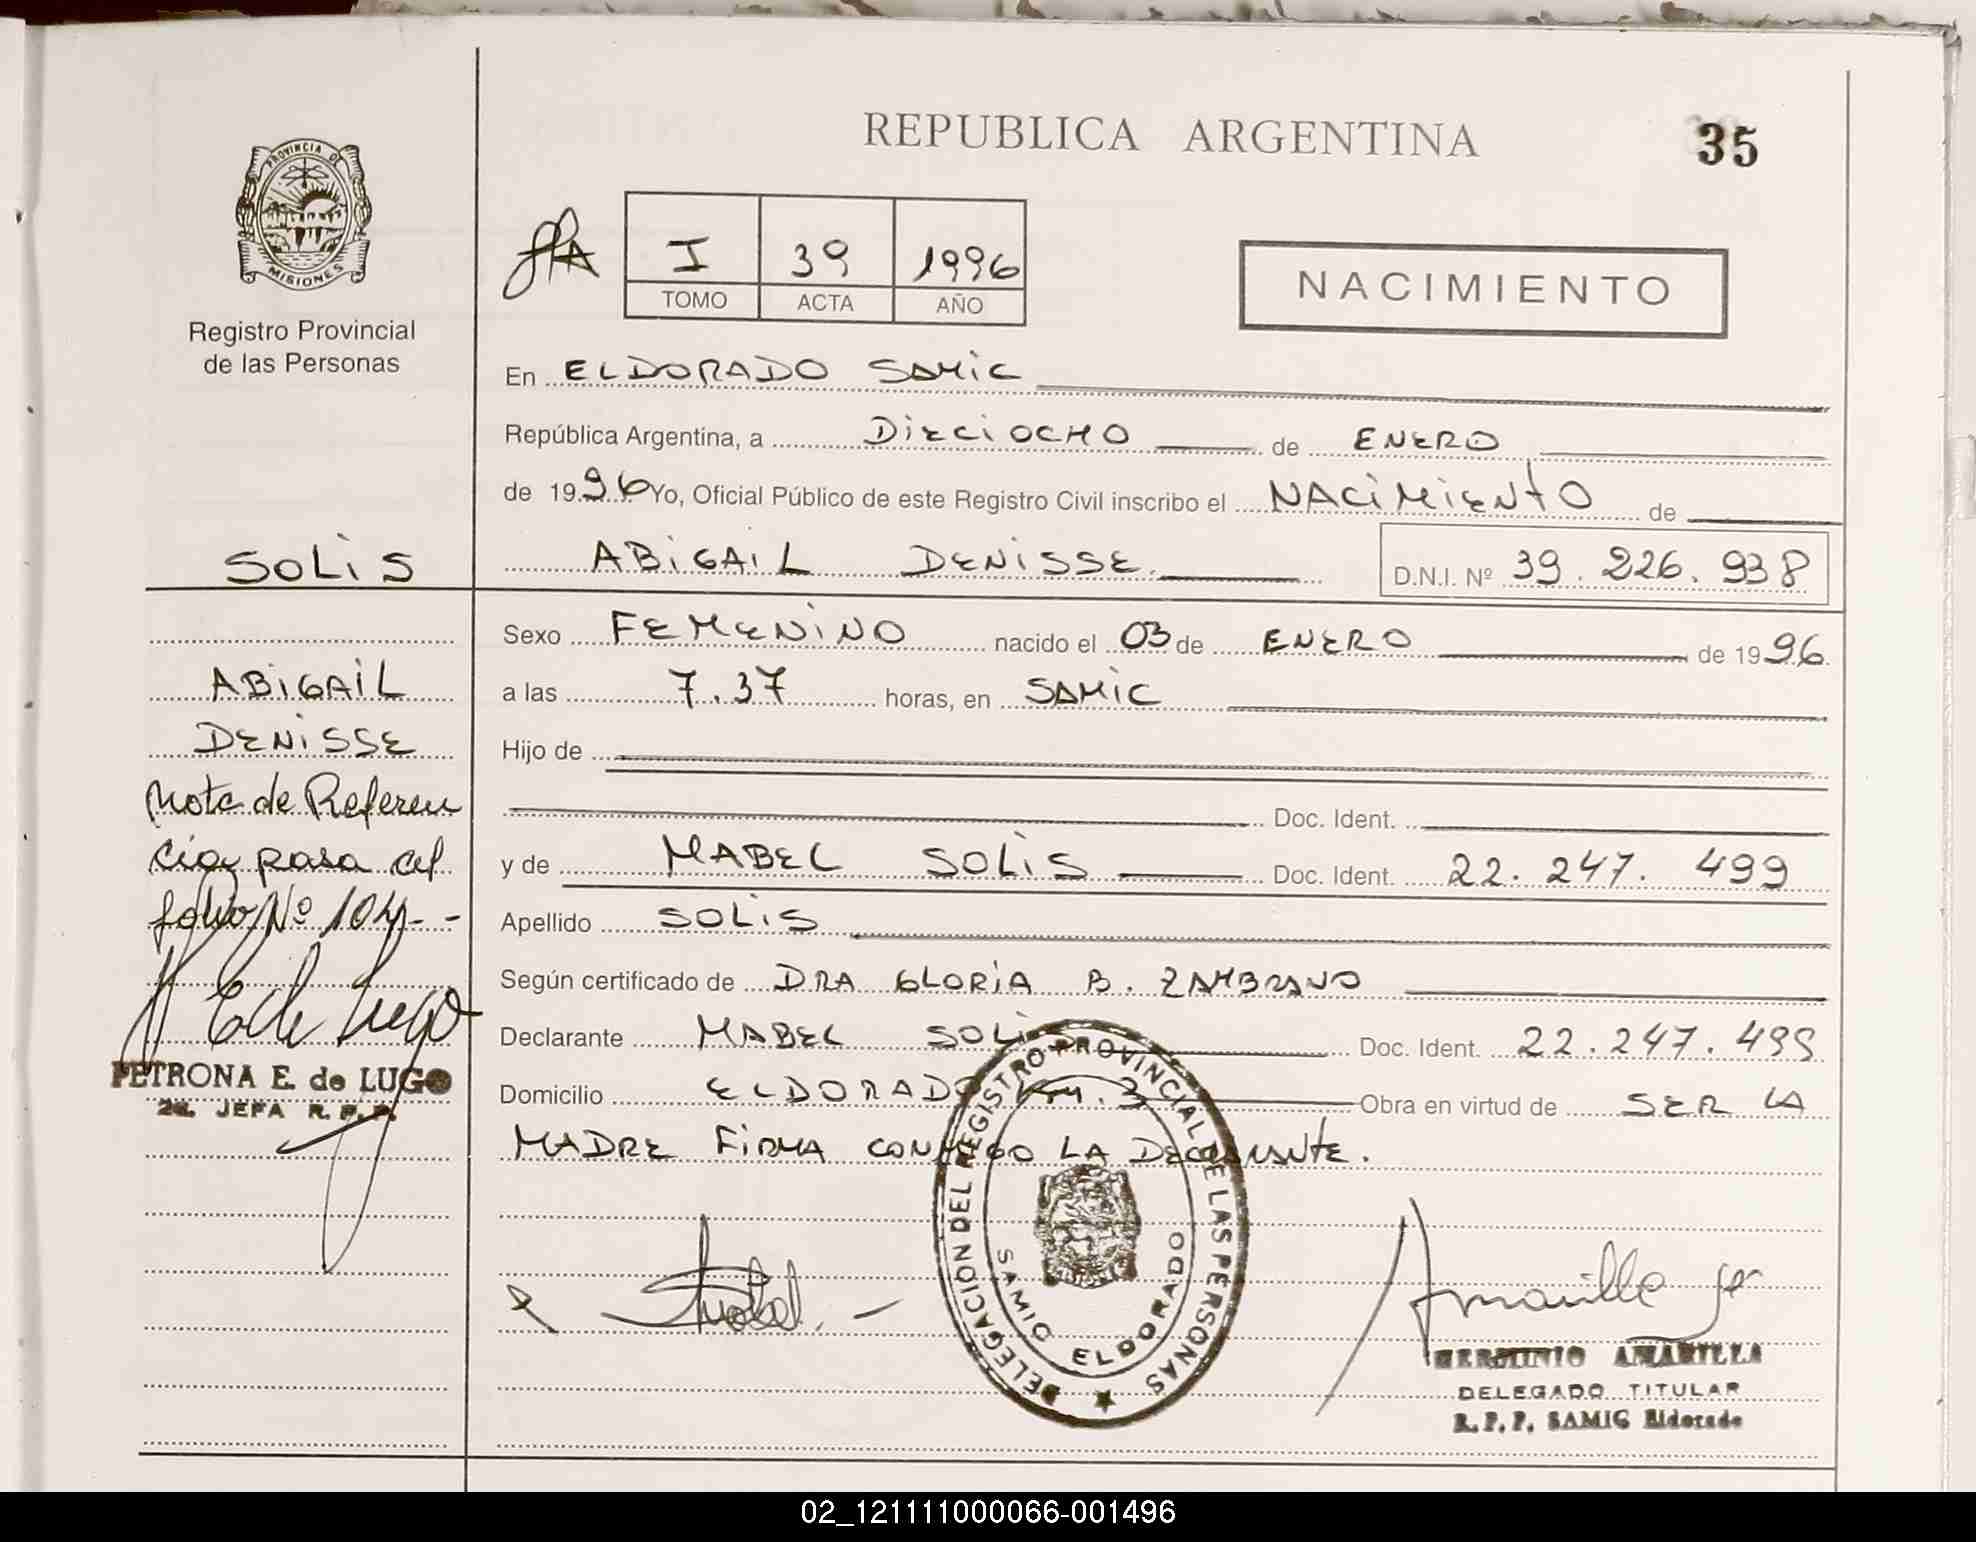 REPUBLICA ARGENTINA
35
PROVINCIA DE
MISIONES
Registro Provincial
de las Personas
I 39 1996
TOMO ACTA AÑO
NACIMIENTO
En ELDORADO SAMIC
República Argentina, a DIECIOCHO de ENERO
de 1996 Yo, Oficial Público de este Registro Civil inscribo el NACIMIENTO de
ABIGAIL DENISSE. D.N.I. Nº 39.226.938
Sexo FEMENINO nacido el 03 de ENERO de 1996.
a las 7.37 horas, en SAMIC
Hijo de
Doc. Ident.
y de MABEL SOLIS Doc. Ident. 22.247.499
Apellido SOLIS
Según certificado de DRA GLORIA B. ZAMBRANO
Declarante MABEL SOLIS Doc. Ident. 22.247.499
Domicilio ELDORADO KM. 3 Obra en virtud de SER LA
MADRE FIRMA CONMIGO LA DECLARANTE.
SOLIS
ABIGAIL
DENISSE
Nota de Referen
cia pasa al
folio Nº 104.-
E de Lugo
PETRONA E. de LUGO
2da. JEFA R.P.P.
DELEGACION DEL REGISTRO PROVINCIAL DE LAS PERSONAS
SAMIC ELDORADO
Amarilla
HERMINIO AMARILLA
DELEGADO TITULAR
R.P.P. SAMIC Eldorado
02_121111000066-001496